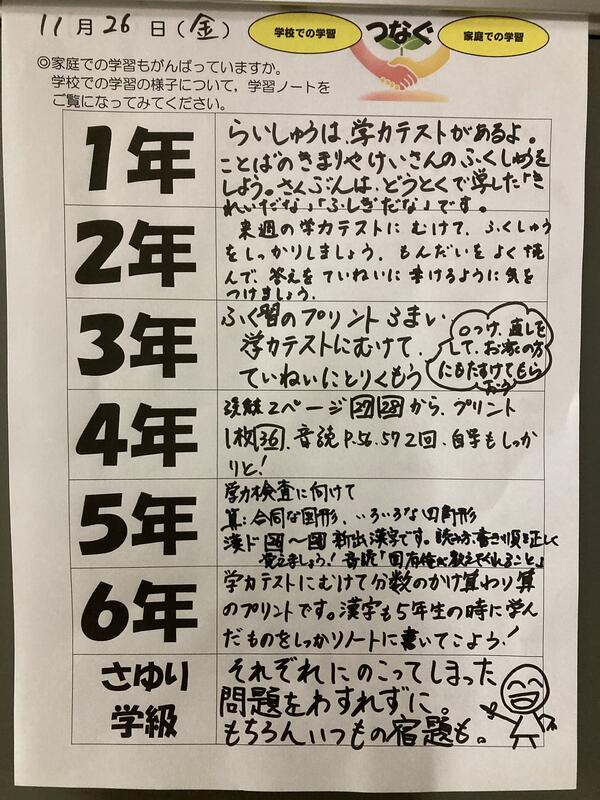 11月26日(金)
学校での学習
つなぐ
家庭での学習
◎家庭での学習もがんばっていますか。
学校での学習の様子について，学習ノートを
ご覧になってみてください。
1年
らいしゅうは、学力テストがあるよ。
ことばのきまりやけいさんのふくしゅうを
しよう。さくぶんは、どうとくで学した「き
れいだな」「ふしぎだな」です。
2年
来週の学力テストにむけて、ふくしゅう
をしっかりしましょう。もんだいをよく読
んで、答えをていねいに書けるように気を
つけましょう。
3年
ふく習のプリント3まい
学力テストにむけて、
ていねいにとりくもう
○つけ、直しを
して、お家の方
にもたすけてもら
おう
4年
漢練2ページ27 28から、プリント
1枚36、音読P.56.57 2回、自学もしっか
りと!
5年
学力検査に向けて
算:合同な図形、いろいろな四角形
漢ド 〜 新出漢字です。読み方、書き順を正しく
覚えましょう!音読「固有種が教えてくれること」
6年
学力テストにむけて分数のかけ算わり算
のプリントです。漢字も5年生の時に学ん
だものをしっかりノートに書いてこよう!
さゆり
学級
それぞれにのこってしまった
問題をわすれずに。
もちろんいつもの宿題も。